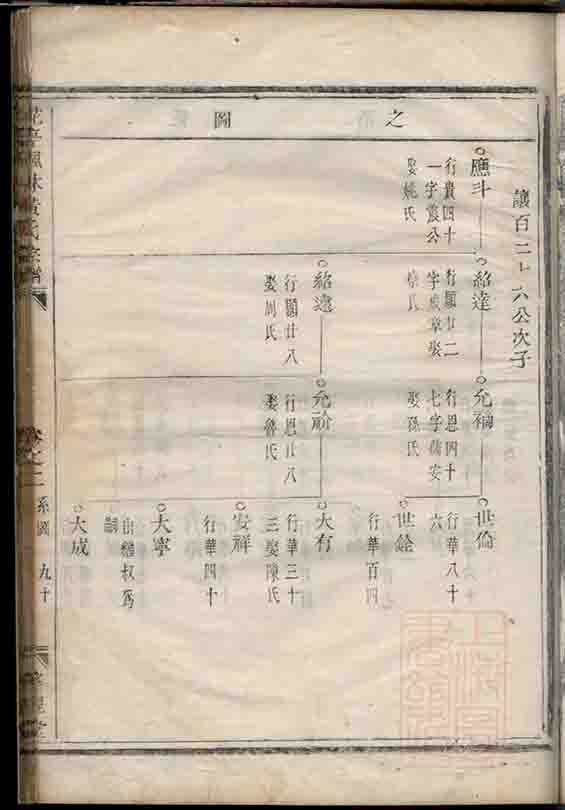 之 圖
讓百二十六公次子
應斗
行貴四十
一字震公
娶姚氏
紹達
行顯廿二
字成章娶
徐氏
紹遠
行顯廿八
娶周氏
行恩四十
娶孫氏
行恩廿八
娶魯氏
世倫
行華八十
六
世銓
行華百四
大有
行華三十
三娶陳氏
安祥
行華四十
大寧
出繼叔為
大成
黃氏宗譜
卷之二
系圖
九十